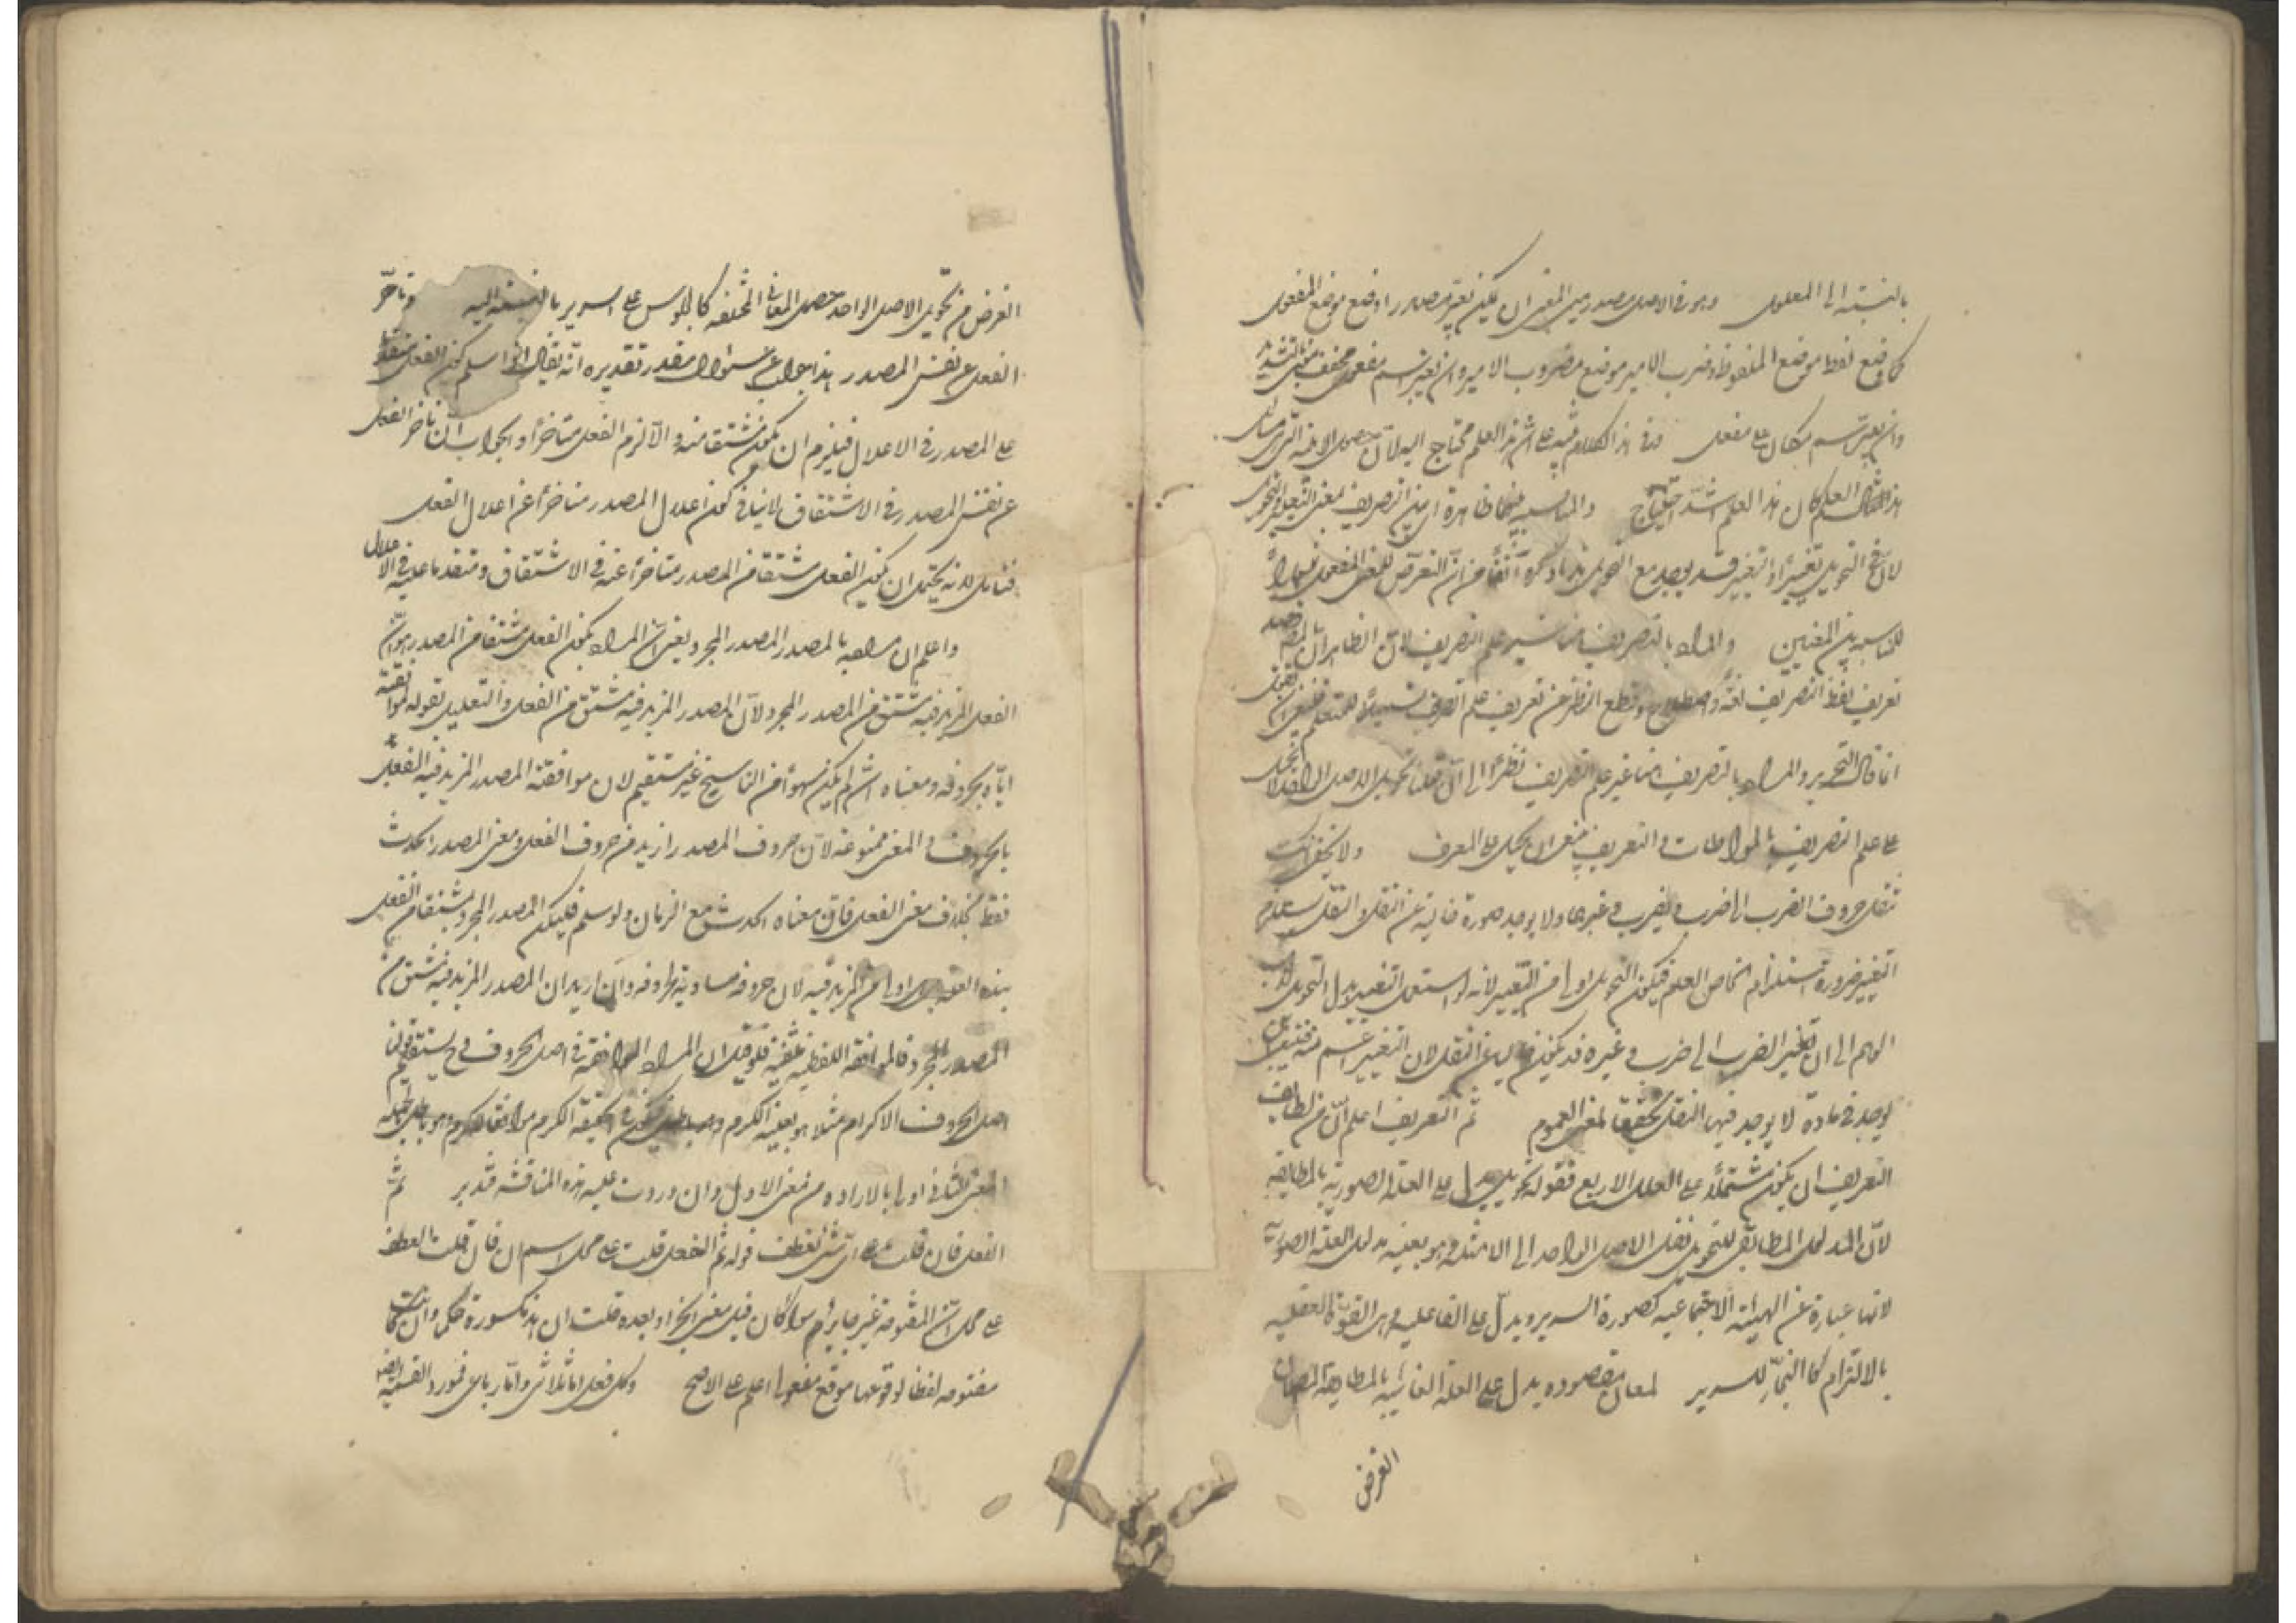 بالنسبة الى المعلول وهو فى الاصل مصدر ميمى المعنى ان يكون نعتبر مصدرا وضع موضع المفعول
كما وضع لفظ موضع الملفوظ وضرب الامير موضع مضروب الامير وان نعتبر اسم مفعول مخفف
وان نعتبر اسم مكان على مفعل وفى هذا الكلام تنبيه على ان هذا العلم محتاج اليه لان حصول الامثلة التى
هذا العلم كان هذا العلم اشد احتياج والمناسبة بينهما ظاهرة اى بين التصريف بمعنى التغيير والتحويل
لان فى التحويل تغييرا والتغيير قد يوجد مع التحويل آنفا من ان التعرض للمعنى
للمناسبة بين المعنيين والمراد بالتصريف هنا غير علم التصريف لان الظاهر ان
تعريف لفظ التصريف لغة واصطلاحا وقطع النظر عن تعريف علم التصريف للمتعلم
انما قال التحرير والمراد بالتصريف هنا غير علم التصريف نظرا الى ان قلنا تحويل الاصل الواحد
على علم التصريف بالمواطات والتعريف ينبغى ان يحمل على المعرف ولا يخفى انك
تنقل حروف الضرب الى ضرب ويضرب وغيرها ولا يوجد صورة خالية عن النقل والنقل يستلزم
التغيير ضرورة استلزام الخاص العام فيكون التحويل اولى من التغيير لانه لو استعمل التغيير بدل التحويل
الوهم الى ان تغيير الضرب الى ضرب وغيره قد يكون خاليا عن النقل لان التغيير اعم منه
يوجد فى مادة لا يوجد فيها النقل تحقيقا لمعنى العموم ثم التعريف اعلم ان من لطايف
التعريف ان يكون مشتملا على العلل الاربع فقوله تحويل يدل على العلة الصورية بالمطابقة
لان المدلول المطابقى للتحويل نقل الاصل الواحد الى الامثلة وهو بعينه مدلول العلة الصورية
لانها عبارة عن الهيئة الاجتماعية كصورة السرير ويدل على الفاعلية وهى القوة العقلية
بالالتزام كالنجار للسرير لمعان مقصودة يدل على العلة الغائية بالمطابقة
الغرض
الغرض من تحويل الاصل الواحد حصول المعانى المختلفة كالجلوس على السرير بالنسبة اليه وتاخر
الفعل عن نفس المصدر هذا جواب عن سؤال مقدر تقديره انه يقال لو اسلم كون الفعل
على المصدر فى الاعلال فيلزم ان يكون مشتقا منه والا لزم الفعل متاخرا والجواب ان تاخر الفعل
عن نفس المصدر فى الاشتقاق لا ينافى كون اعلال المصدر متاخرا عن اعلال الفعل
فتامل لانه يحتمل ان يكون الفعل مشتقا من المصدر متاخرا عنه فى الاشتقاق ومتقدما عليه فى الاعلال
واعلم ان مرادهم بالمصدر المصدر المجرد يعنى ان المراد بكون الفعل مشتقا من المصدر هو ان
الفعل المزيد فيه مشتق من المصدر المجرد لان المصدر المزيد فيه مشتق من الفعل والتعليل بقوله لموافقته
اياه بحروفه ومعناه ان لم يكن سهوا من الناسخ غير مستقيم لان موافقة المصدر المزيد فيه الفعل
بالحروف والمعنى ممنوعة لان حروف المصدر ازيد من حروف الفعل ومعنى المصدر الحدث
فقط بخلاف معنى الفعل فان معناه الحدث مع الزمان ولو سلم فليكن المصدر المجرد مشتقا من الفعل
بهذه العلة اولى من المزيد فيه لان حروفه مساوية لحروفه وان اريد ان المصدر المزيد فيه مشتق من
المصدر المجرد فالموافقة اللفظية منتفية فلو قيل ان المراد الموافقة فى اصل الحروف وح يستقيم
اصل الحروف الاكرام مثلا هو بعينه الكرم فى الحقيقة الكرم موافقا
المعنى الثانى اولى بالارادة من معنى الاول وان وردت عليه هذه المناقشة فتدبر ثم
الفعل فان قلت على اى شئ يعطف قوله ثم الفعل قلت على محل اسم ان فان قلت العطف
على محل ان المفتوحة غير جايز سواء كان قبل مضى الخبر او بعده قلت ان ان هذه مكسورة حكما وان كانت
مفتوحة لفظا لوقوعها موقع مفعولى اعلم على الاصح وكل فعل اما ثلاثى واما رباعى فمورد القسمة